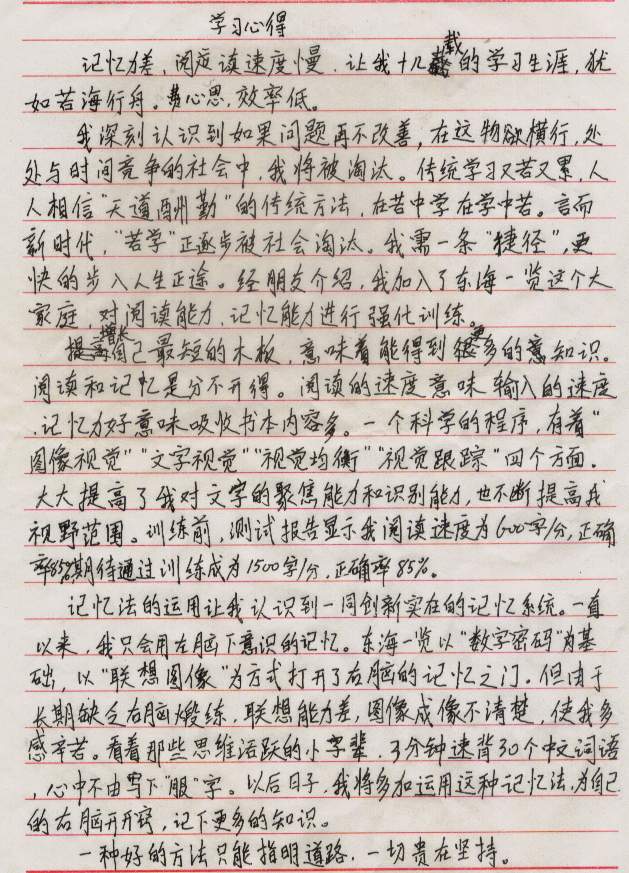 学习心得
记忆力差，阅度读速度慢，让我十几载的学习生涯，犹
如苦海行舟。费心思，效率低。
我深刻认识到如果问题再不改善，在这物欲横行，处
处与时间竞争的社会中，我将被淘汰。传统学习又苦又累，人
人相信"天道酬勤"的传统方法，在苦中学在学中苦。言而
新时代，"苦学"正逐步被社会淘汰。我需一条"捷径"，更
快的步入人生正途。经朋友介绍，我加入了东海一览这个大
家庭，对阅读能力，记忆能力进行强化训练。
增长自己最短的木板，意味着能得到更多的知识。
阅读和记忆是分不开得。阅读的速度意味输入的速度
，记忆力好意味吸收书本内容多。一个科学的程序，有着"
图像视觉""文字视觉""视觉均衡""视觉跟踪"四个方面。
大大提高了我对文字的聚焦能力和识别能力，也不断提高我
视野范围。训练前，测试报告显示我阅读速度为600字/分，正确
率85%期待通过训练成为1500字/分，正确率85%。
记忆法的运用让我认识到一同创新实在的记忆系统。一直
以来，我只会用左脑下意识的记忆。东海一览以"数字密码"为基
础，以"联想图像"为方式打开了右脑的记忆之门。但由于
长期缺乏右脑煅练，联想能力差，图像成像不清楚，使我多
感辛苦。看着那些思维活跃的小字辈，3分钟速背30个中文词语
，心中不由写下"服"字。以后日子，我将多加运用这种记忆法，为自己
的右脑开开窍，记下更多的知识。
一种好的方法只能指明道路，一切贵在坚持。